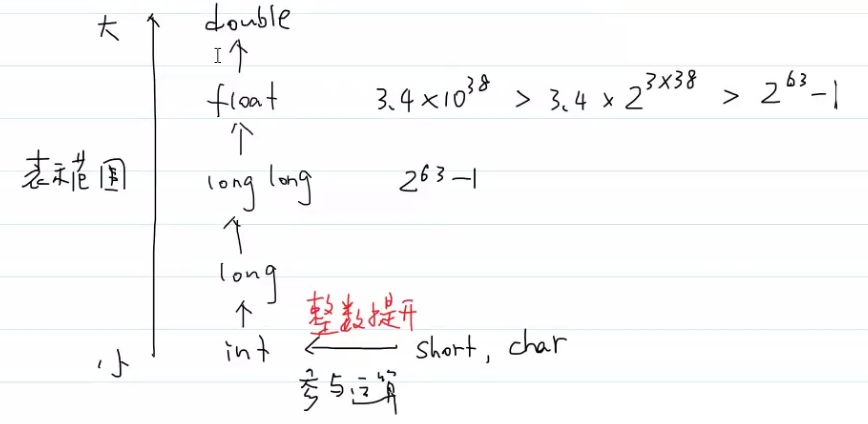 大 double
float 3.4×10³⁸ > 3.4×2³ˣ³⁸ > 2⁶³-1
表示范围 long long 2⁶³-1
long
整数提升
小 int short, char
参与运算